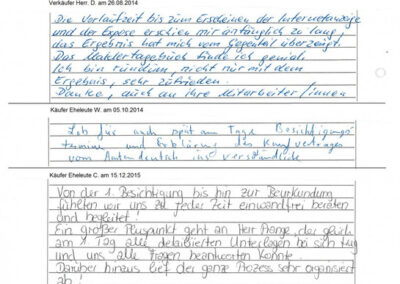 Verkäufer Herr. D. am 26.08.2014
Die Vorlaufzeit bis zum Erscheinen der Internetanzeige
und der Expose erschien mir anfänglich zu lang,
das Ergebnis hat mich vom Gegenteil überzeugt.
Das Maklertagebuch finde ich genial.
Ich bin rundum, nicht nur mit dem
Ergebnis, sehr zufrieden.
Danke, auch an ihre Mitarbeiter/innen
Käufer Eheleute W. am 05.10.2014
Ich für auch spät am Tage Besichtigungs
termine und Erklärung des Kaufvertrages
vom Amtsdeutsch ins verständliche
Käufer Eheleute C. am 15.12.2015
Von der 1. Besichtigung bis hin zur Beurkundung
fühlten wir uns zu jeder Zeit einwandfrei beraten
und begleitet!
Ein großer Pluspunkt geht an Herr Prange, der gleich
am 1 Tag alle detaillierten Unterlagen bei sich trug
und uns alle Fragen beantworten konnte.
Darüber hinaus lief der ganze Prozess sehr organisiert
ab!